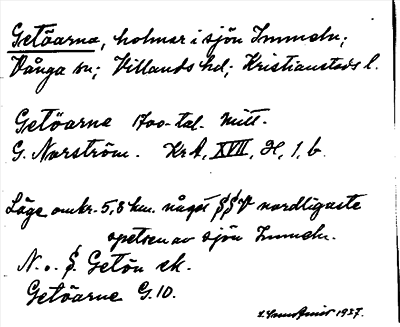 Getöarna, holmar i sjön Immeln;
Vånga sn; Villands hd; Kristianstads l.
Getöarne 1700-tal. mitt.
G. Norström. Kr A, XVII, H, 1, b.
Läge omkr. 5,8 km. något § § V nordligaste
spetsen av sjön Immeln.
N. o. §. Getön ek.
Getöarne G. 10.
1937.